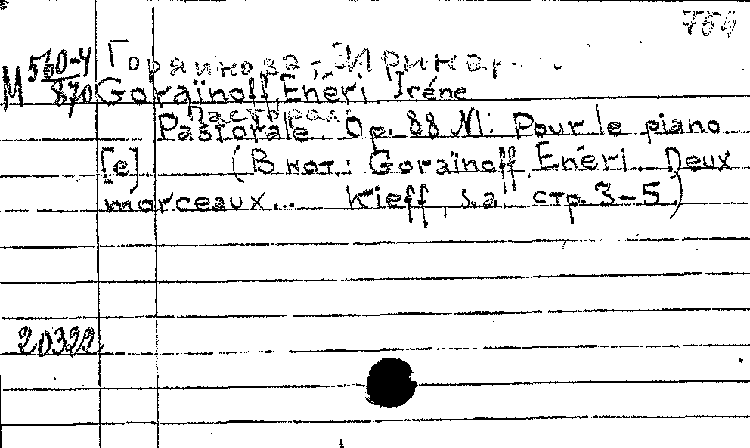 764
М 560-4/870 Горяинова, Ирина.
Goraïnoff Enéri, Iréne
Пастораль
Pastorale. Op. 88 №1. Pour le piano
[e]. (В нот.: Goraïnoff Enéri. Deux
morceaux... Kieff, s.a. стр. 3-5.)
20322